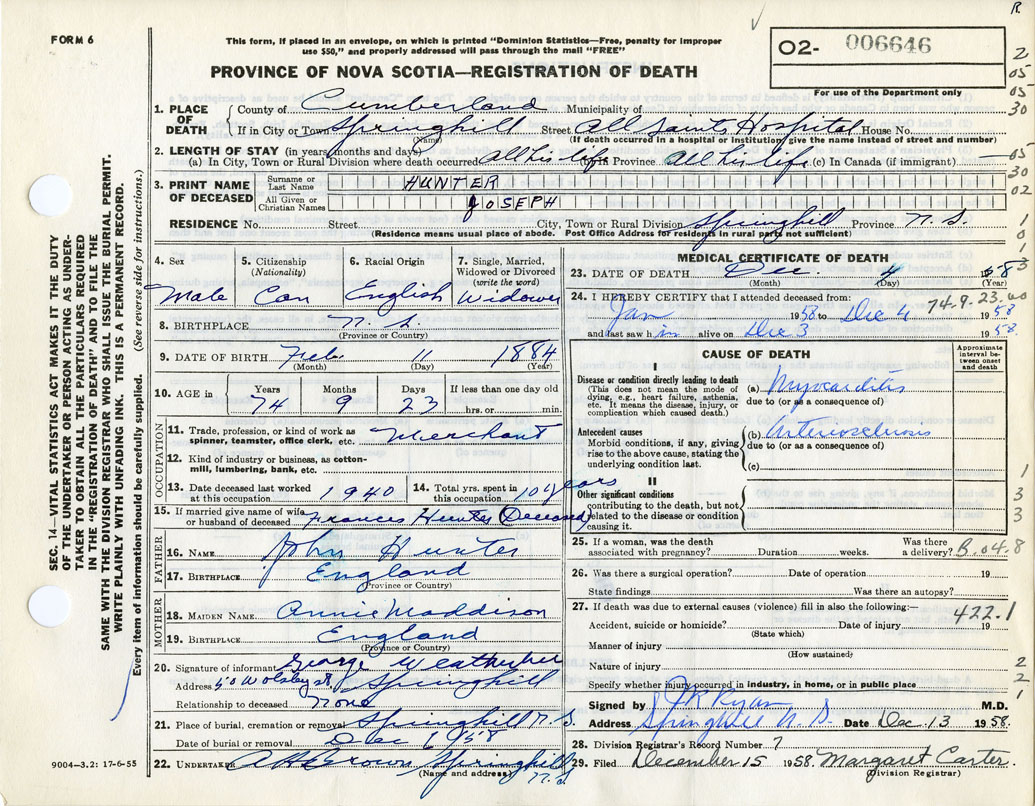 R
FORM 6
This form, if placed in an envelope, on which is printed "Dominion Statistics—Free, penalty for improper
use $50," and properly addressed will pass through the mail "FREE"
O2- 006646
For use of the Department only
PROVINCE OF NOVA SCOTIA—REGISTRATION OF DEATH
2
05
05
30
05
30
02
1
0
1
3
1. PLACE OF DEATH
County of Cumberland Municipality of
If in City or Town Springhill Street All Saints Hospital House No.
(Name) (If death occurred in a hospital or institution, give the name instead of street and number)
2. LENGTH OF STAY (in years, months and days)
(a) In City, Town or Rural Division where death occurred all his life Province All his life (c) In Canada (if immigrant)
3. PRINT NAME OF DECEASED
Surname or Last Name HUNTER
All Given or Christian Names JOSEPH
RESIDENCE No. Street City, Town or Rural Division Springhill Province N. S.
(Residence means usual place of abode. Post Office Address for residents in rural parts not sufficient)
4. Sex Male
5. Citizenship (Nationality) Can
6. Racial Origin English
7. Single, Married, Widowed or Divorced (write the word) Widower
8. BIRTHPLACE N. S.
(Province or Country)
9. DATE OF BIRTH Feb 11 1884
(Month) (Day) (Year)
10. AGE in Years Months Days If less than one day old
74 9 23 hrs. or min.
OCCUPATION
11. Trade, profession or kind of work as spinner, teamster, office clerk, etc. Merchant
12. Kind of industry or business, as cotton-mill, lumbering, bank, etc.
13. Date deceased last worked at this occupation 1940
14. Total yrs. spent in this occupation 10 years
15. If married give name of wife or husband of deceased Frances Hunter (Deceased)
FATHER
16. NAME John Hunter
17. BIRTHPLACE England
(Province or Country)
MOTHER
18. MAIDEN NAME Annie Maddison
19. BIRTHPLACE England
(Province or Country)
20. Signature of informant George
Address 50 St Springhill
Relationship to deceased None
21. Place of burial, cremation or removal Springhill N. S.
Date of burial or removal Dec 6 1958
22. UNDERTAKER Brown Springhill
(Name and address) N. S.
9004—3.2: 17-6-55
MEDICAL CERTIFICATE OF DEATH
23. DATE OF DEATH Dec. 4 58
(Month) (Day)
24. I HEREBY CERTIFY that I attended deceased from: 74.9.23.
Jan 1958 to Dec 4 1958
and last saw him alive on Dec 3 1958
CAUSE OF DEATH
Approximate interval between onset and death
I
Disease or condition directly leading to death
(This does not mean the mode of dying, e.g., heart failure, asthenia, etc. It means the disease, injury, or complication which caused death.)
(a) Myocarditis
due to (or as a consequence of)
Antecedent causes
Morbid conditions, if any, giving rise to the above cause, stating the underlying condition last.
(b) Arteriosclerosis
due to (or as a consequence of)
(c)
II
Other significant conditions
contributing to the death, but not related to the disease or condition causing it.
1
3
3
25. If a woman, was the death associated with pregnancy? Duration weeks. Was there a delivery? B.04.8
26. Was there a surgical operation? Date of operation 19
State findings Was there an autopsy?
27. If death was due to external causes (violence) fill in also the following:— 422.1
Accident, suicide or homicide? Date of injury 19
(State which)
Manner of injury
(How sustained)
Nature of injury
Specify whether injury occurred in industry, in home, or in public place
2
2
1
Signed by J R Ryan M.D.
Address Springhill N. S. Date Dec 13 1958.
28. Division Registrar's Record Number 7
29. Filed December 15 1958 Margaret Carter.
(Division Registrar)
SEC. 14—VITAL STATISTICS ACT MAKES IT THE DUTY
OF THE UNDERTAKER OR PERSON ACTING AS UNDER-
TAKER TO OBTAIN ALL THE PARTICULARS REQUIRED
IN THE "REGISTRATION OF DEATH" AND TO FILE THE
SAME WITH THE DIVISION REGISTRAR WHO SHALL ISSUE THE BURIAL PERMIT.
WRITE PLAINLY WITH UNFADING INK. THIS IS A PERMANENT RECORD.
Every item of information should be carefully supplied. (See reverse side for instructions.)